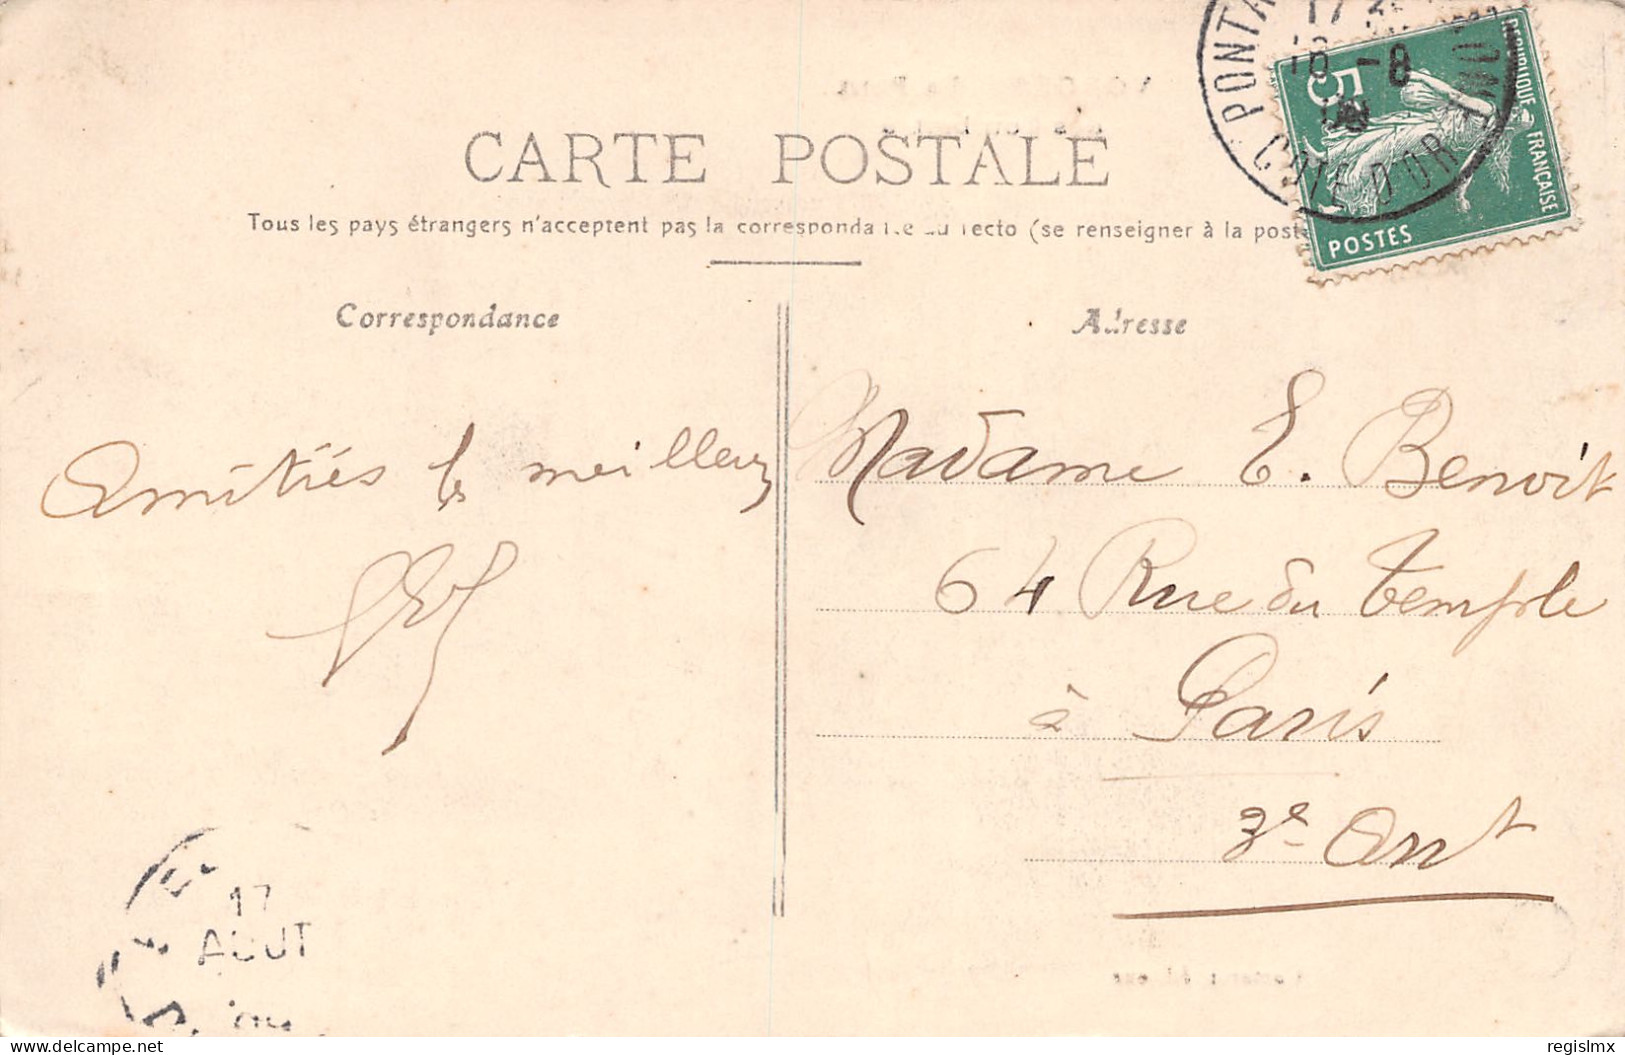 CARTE POSTALE
Tous les pays étrangers n'acceptent pas la correspondance au recto (se renseigner à la poste
Correspondance
Adresse
REPUBLIQUE FRANÇAISE
5
POSTES
17
16 -8
COTE D'OR
Amitiés les meilleures
Madame E. Benoit
64 Rue du Temple
à Paris
3e Arrt
17
AOUT
delcampe.net
regislmx